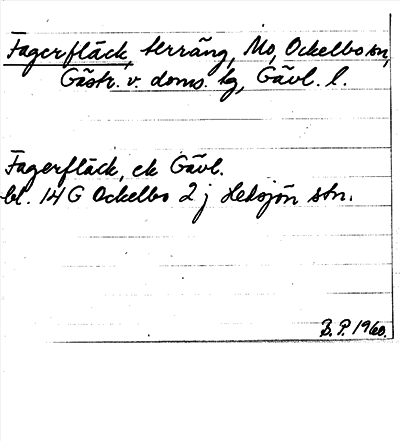 Fagerfläck, terräng, Mo, Ockelbo sn,
Gästr. v. doms. tg, Gävl. l.
Fagerfläck, ek Gävl.
bl. 14 G Ockelbo 2 j Hedsjön stn.
B. P. 1960.